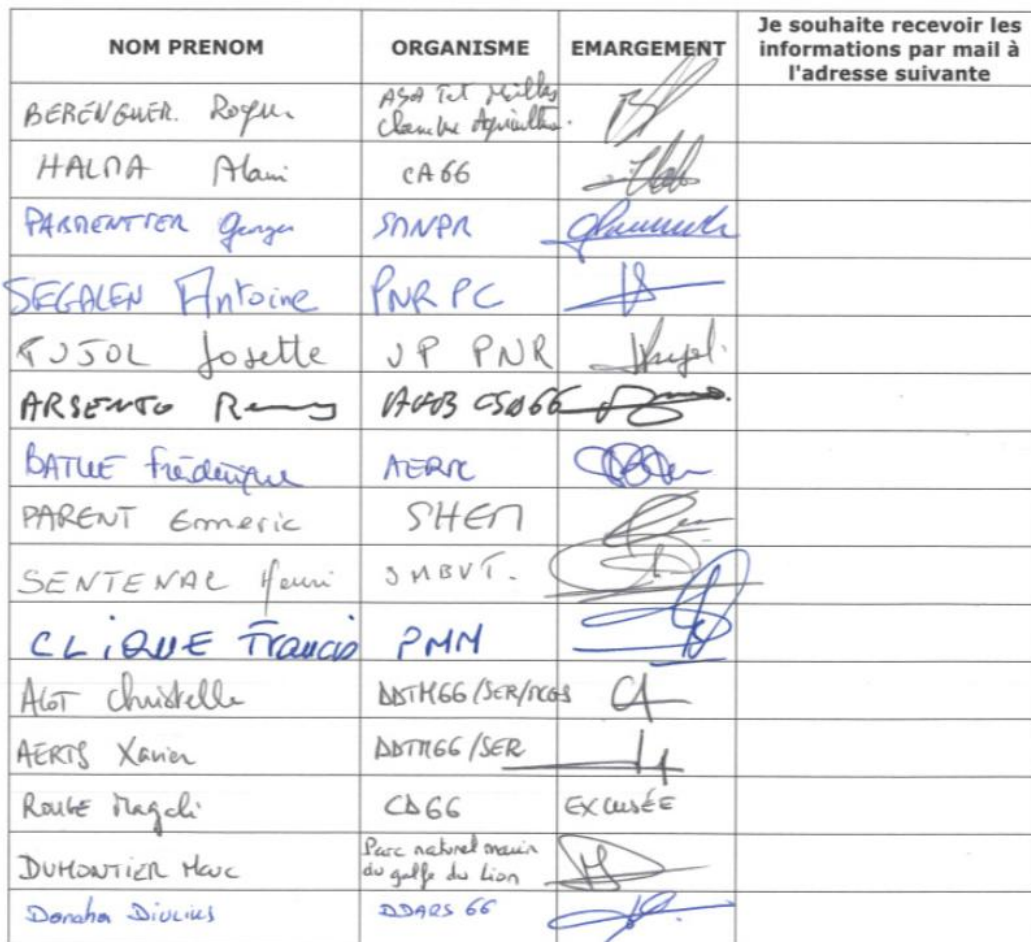 NOM PRENOM ORGANISME EMARGEMENT Je souhaite recevoir les informations par mail à l'adresse suivante
BERENGUER Roger ASA Chambre Agriculture
HALMA Alain CA66
PARMENTIER Georges SDNPR
SEGALEN Antoine PNR PC
PUJOL Josette VP PNR
ARSENTO Remy
BATLLE Frédérique AERMC
PARENT Emmeric SHEM
SENTENAC Henri SMBVT.
CLIQUE Francis PMM
ALOT Christelle DDTM66/SER/
AERTS Xavier DDTM66/SER
ROUGE Magali CD66 EXCUSÉE
DUMONTIER Marc Parc naturel marin du golfe du Lion
DDARS 66